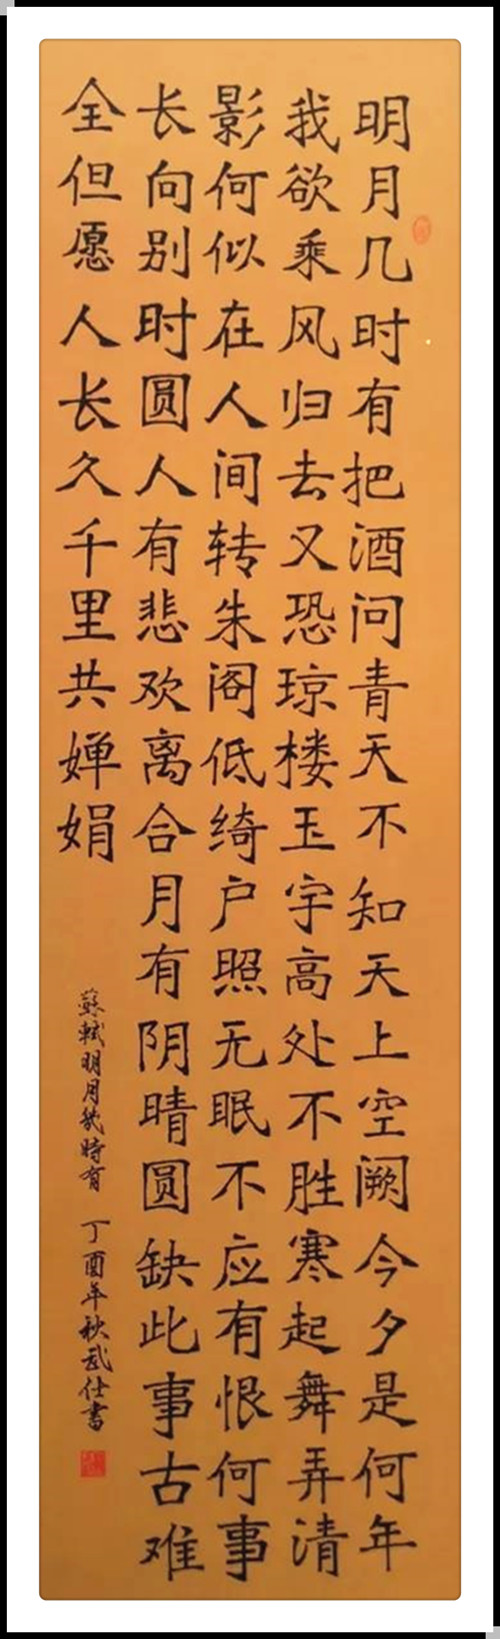 明月几时有把酒问青天不知天上空阙今夕是何年
我欲乘风归去又恐琼楼玉宇高处不胜寒起舞弄清
影何似在人间转朱阁低绮户照无眠不应有恨何事
长向别时圆人有悲欢离合月有阴晴圆缺此事古难
全但愿人长久千里共婵娟
蘇軾明月幾時有 丁酉年秋武仕書